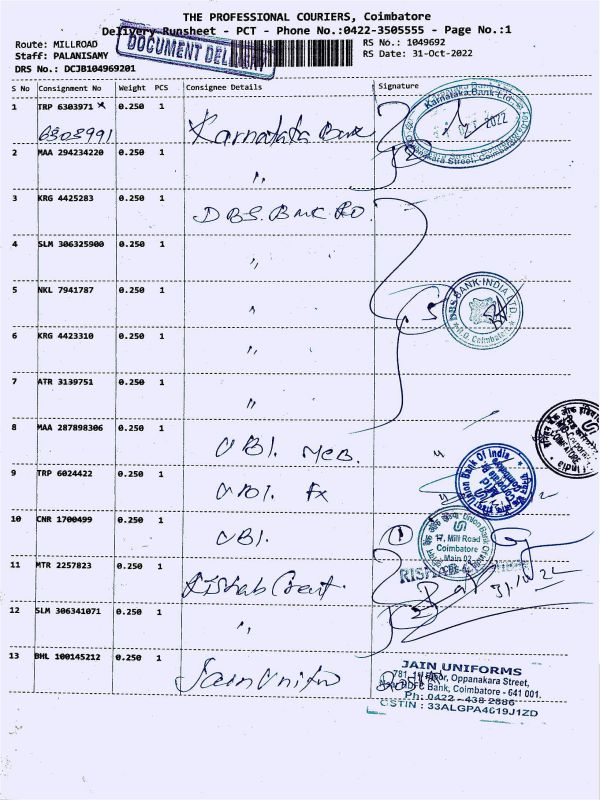 THE PROFESSIONAL COURIERS, Coimbatore
Delivery Runsheet - PCT - Phone No.:0422-3505555 - Page No.:1
DOCUMENT DELIVERY
Route: MILLROAD
RS No.: 1049692
Staff: PALANISAMY
RS Date: 31-Oct-2022
DRS No.: DCJB104969201
S No Consignment No Weight PCS Consignee Details Signature
1 TRP 6303971 x 0.250 1 Karnataka Bank
6303991
Karnataka Bank Ltd.
2022
Oppanakara Street, Coimbatore
2 MAA 294234220 0.250 1 "
3 KRG 4425283 0.250 1 DBS. Bank RO.
4 SLM 306325900 0.250 1 "
5 NKL 7941787 0.250 1 "
5
DBS BANK INDIA LTD.
R.O. Coimbatore
6 KRG 4423310 0.250 1 "
7 ATR 3139751 0.250 1 "
8 MAA 287898306 0.250 1 UBI. MCB.
Union Bank Of India
9 TRP 6024422 0.250 1 UBI. FX
10 CNR 1700499 0.250 1 UBI.
1
Union Bank Of India
17, Mill Road
Coimbatore
Main 02
11 MTR 2257823 0.250 1 Rishab
31.10.22
12 SLM 306341071 0.250 1 "
2
13 BHL 100145212 0.250 1 Jain Uniform
JAIN UNIFORMS
781, 1st Floor, Oppanakara Street,
HDFC Bank, Coimbatore - 641 001.
Ph: 0422 - 438 2886
GSTIN : 33ALGPA4619J1ZD